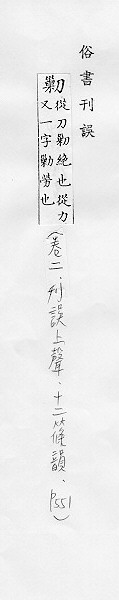 俗書刊誤
剿從刀勦絶也從力
又一字勦勞也
(卷二、刊誤上聲、十二篠韻、P551)